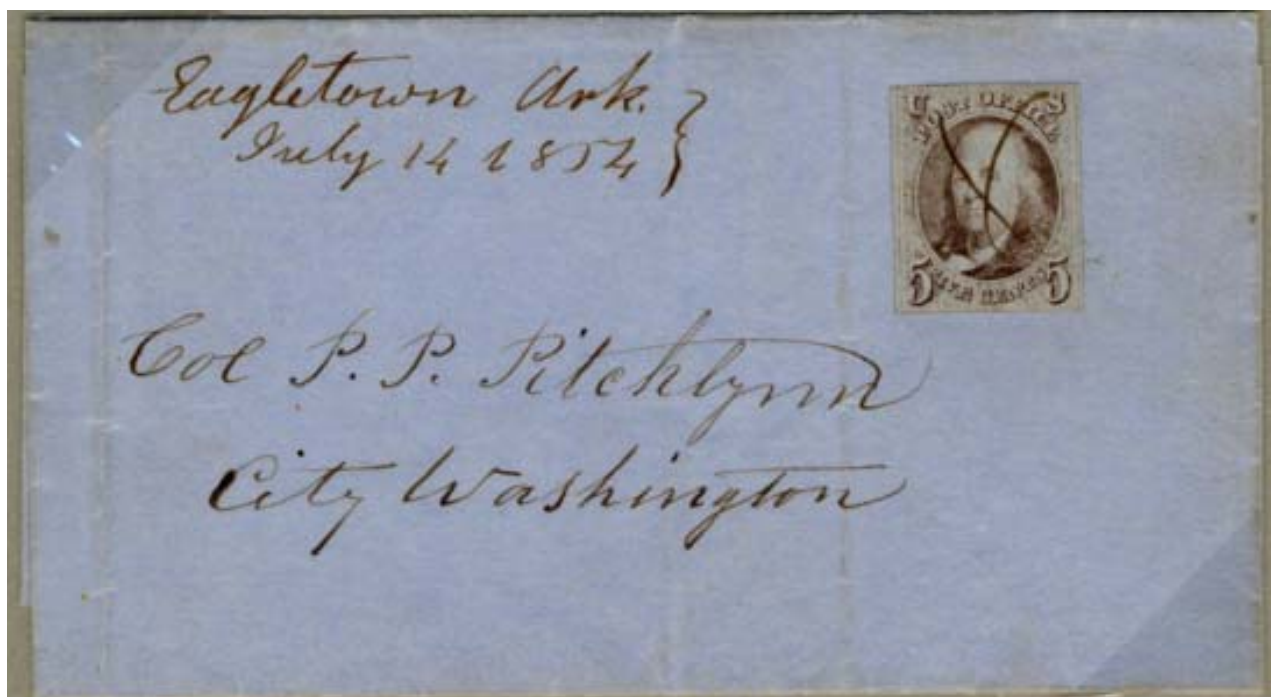 Eagletown Ark. }
July 14 1854 }
POST OFFICE
5 FIVE CENTS 5
Col P. P. Pitchlynn
City Washington